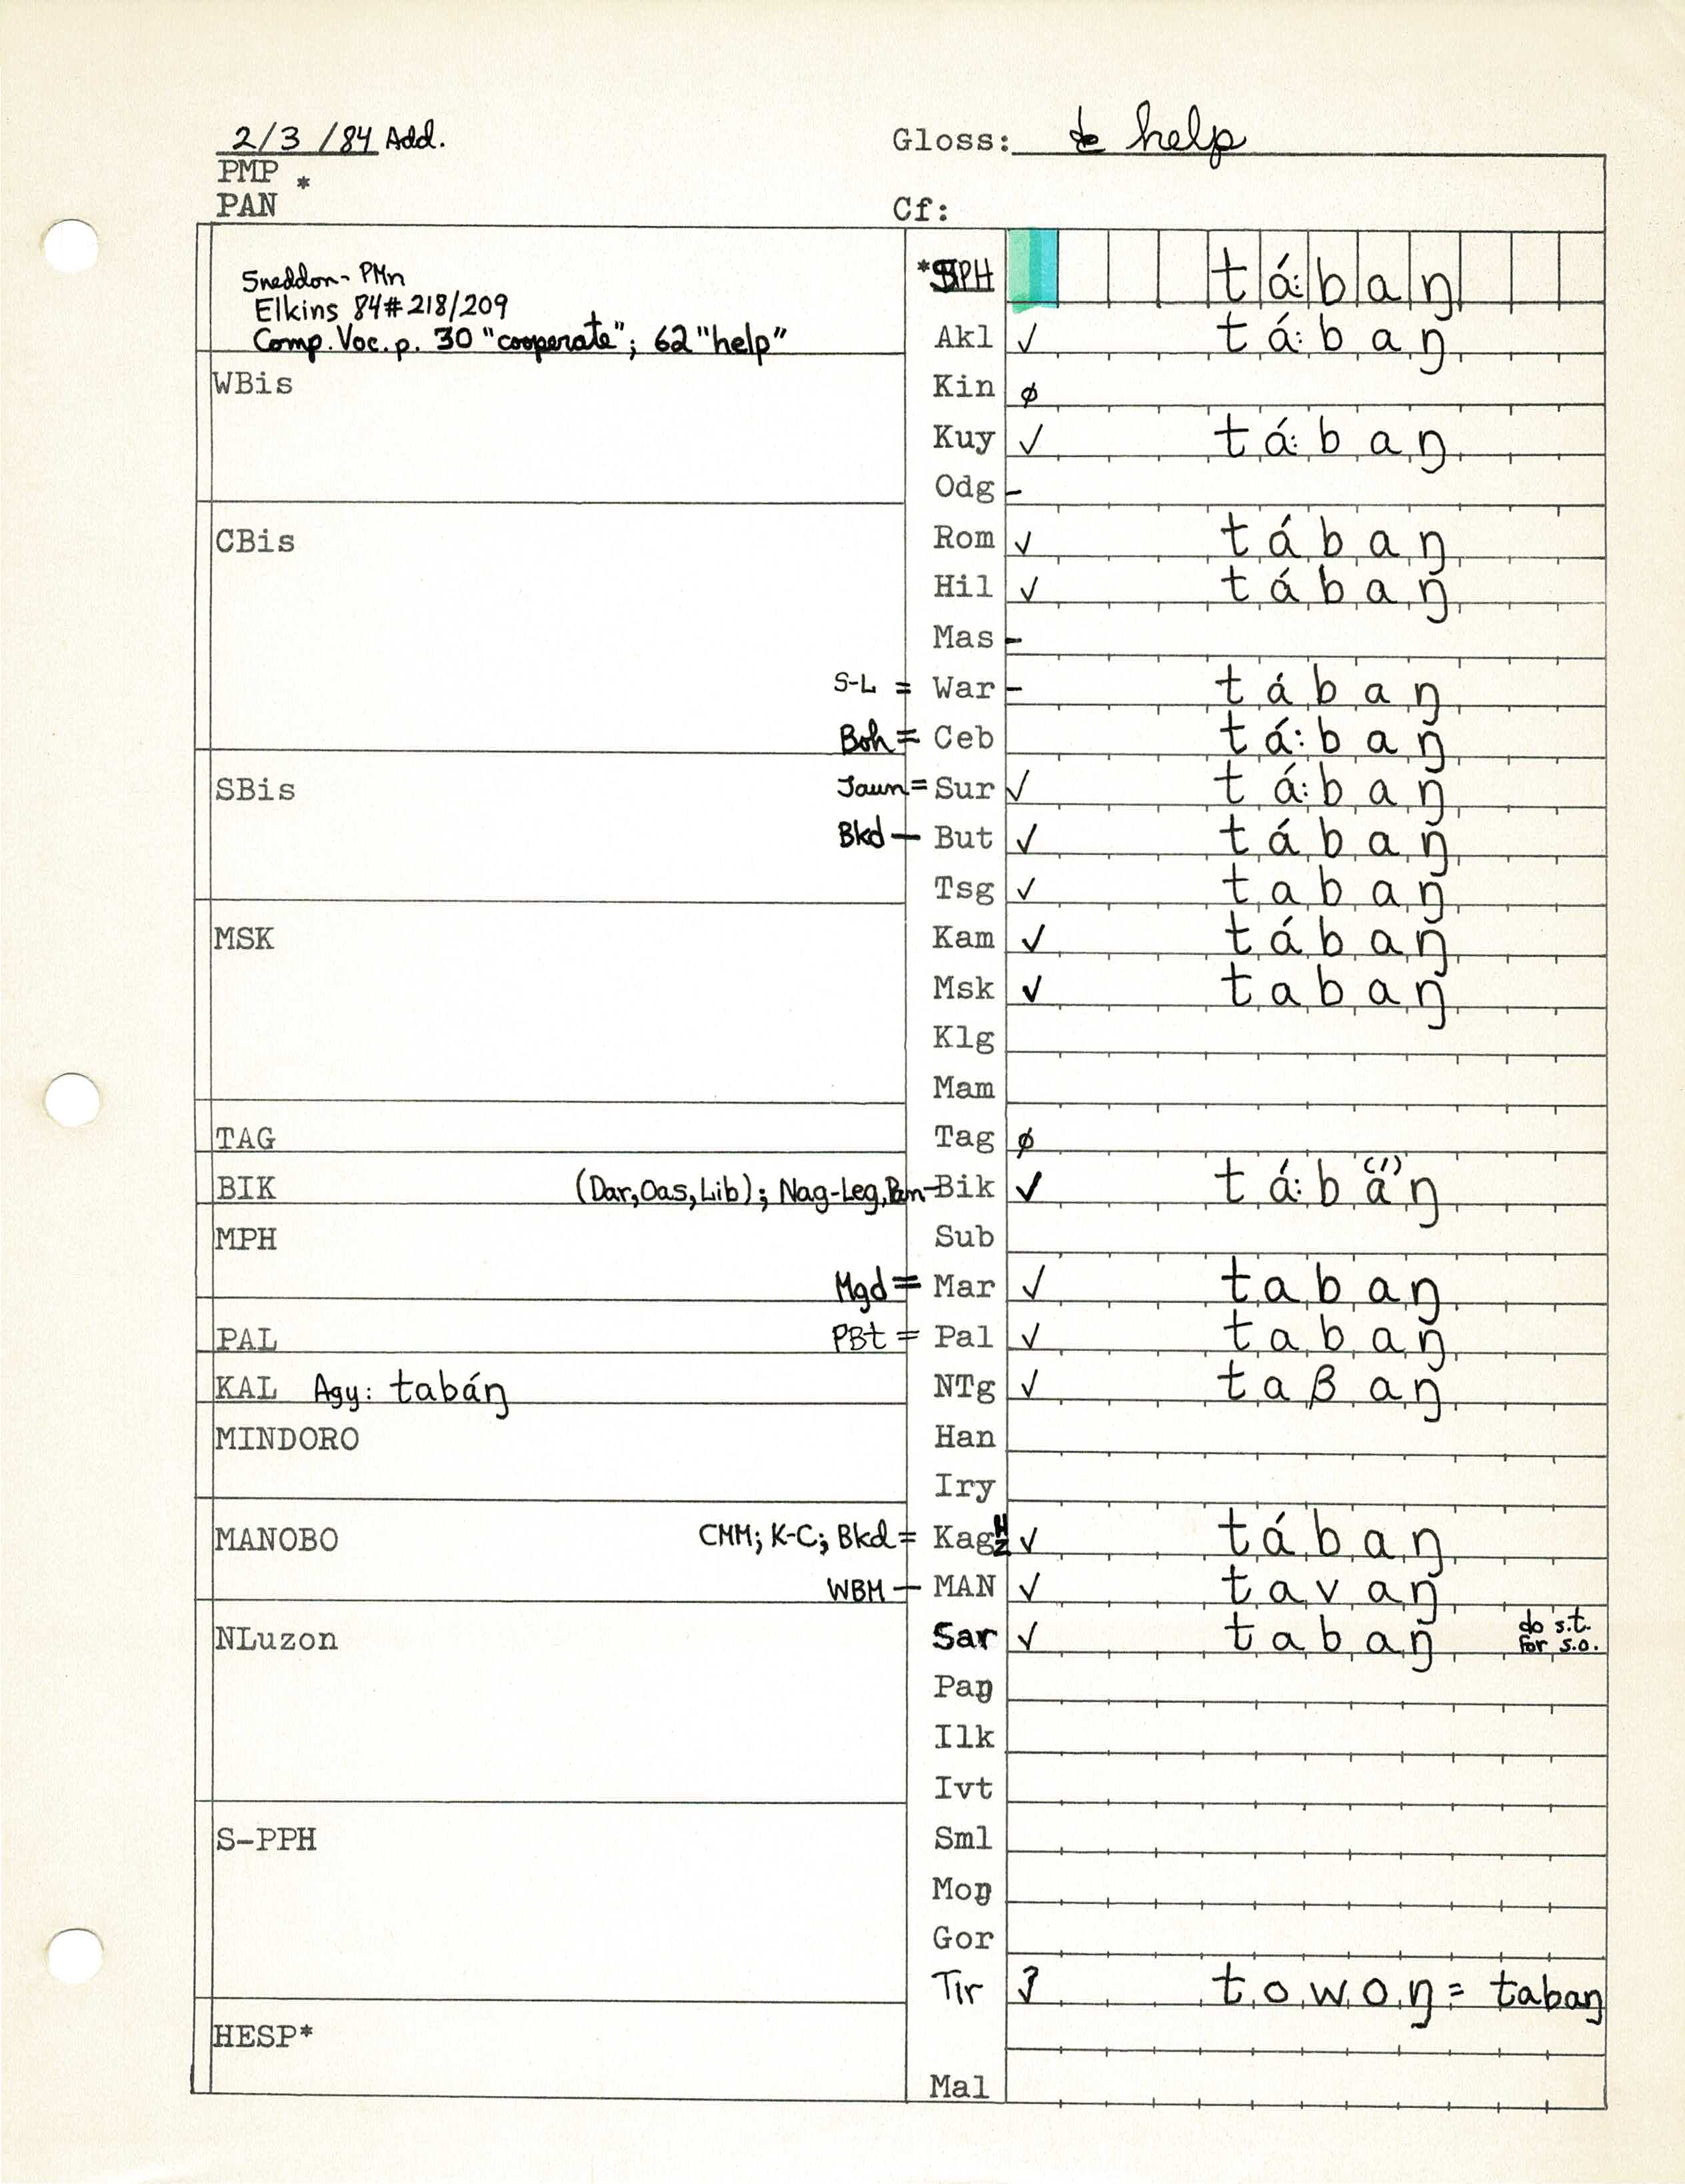 2/3/84 Add.
Gloss: to help
PMP *
PAN
Cf:
Sneddon- PMn
Elkins 84#218/209
Comp. Voc. p. 30 "cooperate"; 62 "help"
PH tá:baŋ
Akl ✓ tá:baŋ
WBis
Kin ø
Kuy ✓ tá:baŋ
Odg -
CBis
Rom ✓ tábaŋ
Hil ✓ tábaŋ
Mas -
S-L = War - tábaŋ
Boh = Ceb tá:baŋ
SBis
Jaun = Sur ✓ tá:baŋ
Bkd — But ✓ tábaŋ
Tsg ✓ tabaŋ
MSK
Kam ✓ tábaŋ
Msk ✓ tabaŋ
Klg
Mam
TAG
Tag ø
BIK (Dar,Oas,Lib); Nag-Leg, - Bik ✓ tá:ba(´)ŋ
MPH
Sub
Mgd = Mar ✓ tabaŋ
PAL PBt = Pal ✓ tabaŋ
KAL Agy: tabáŋ
NTg ✓ taβaŋ
MINDORO
Han
Iry
MANOBO CMM; K-C; Bkd = Kag ✓ tábaŋ
WBM — MAN ✓ tavaŋ
NLuzon
Sar ✓ tabaŋ do s.t.
for s.o.
Paŋ
Ilk
Ivt
S-PPH
Sml
Moŋ
Gor
Tir ? towoŋ = tabaŋ
HESP*
Mal